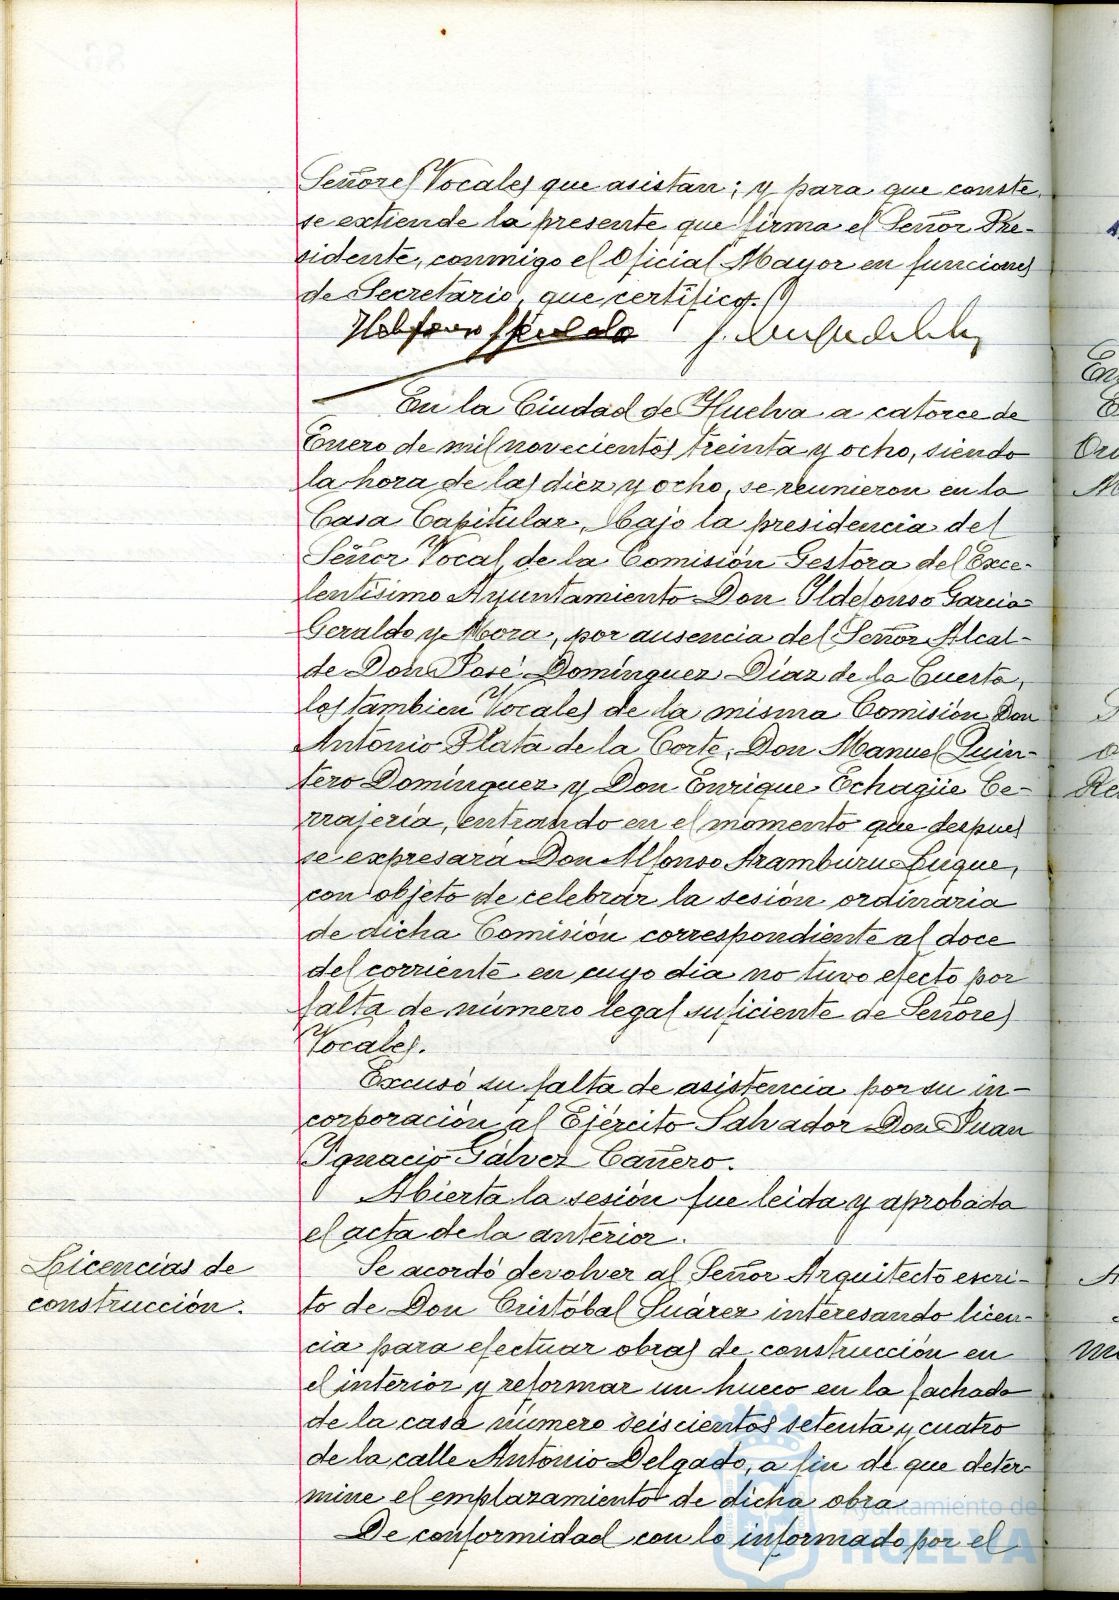 Señores Vocales que asistan; y para que conste,
se extiende la presente que firma el Señor Pre-
sidente, conmigo el Oficial Mayor en funciones
de Secretario, que certifico.
En la Ciudad de Huelva a catorce de
Enero de mil novecientos treinta y ocho, siendo
la hora de las diez y ocho, se reunieron en la
Casa Capitular, bajo la presidencia del
Señor Vocal de la Comisión Gestora del Exce-
lentísimo Ayuntamiento Don Ildefonso Garcia
Geraldo y Mora, por ausencia del Señor Alcal-
de Don José Domínguez Díaz de la Cuesta,
los tambien Vocales de la misma Comisión Don
Antonio Plata de la Corte, Don Manuel Quin-
tero Domínguez y Don Enrique Echagüe Ce-
rrajería, entrando en el momento que despues
se expresará Don Alfonso Aramburu Luque,
con objeto de celebrar la sesión ordinaria
de dicha Comisión correspondiente al doce
del corriente en cuyo dia no tuvo efecto por
falta de número legal suficiente de Señores
Vocales.
Excusó su falta de asistencia por su in-
corporación al Ejército Salvador Don Juan
Ignacio Gálvez Cañero.
Abierta la sesión fue leida y aprobada
el acta de la anterior.
Licencias de
construcción.
Se acordó devolver al Señor Arquitecto escri-
to de Don Cristóbal Suárez interesando licen-
cia para efectuar obras de construcción en
el interior y reformar un hueco en la fachada
de la casa número seiscientos setenta y cuatro
de la calle Antonio Delgado, a fin de que deter-
mine el emplazamiento de dicha obra
De conformidad con lo informado por el
Ayuntamiento de
HUELVA